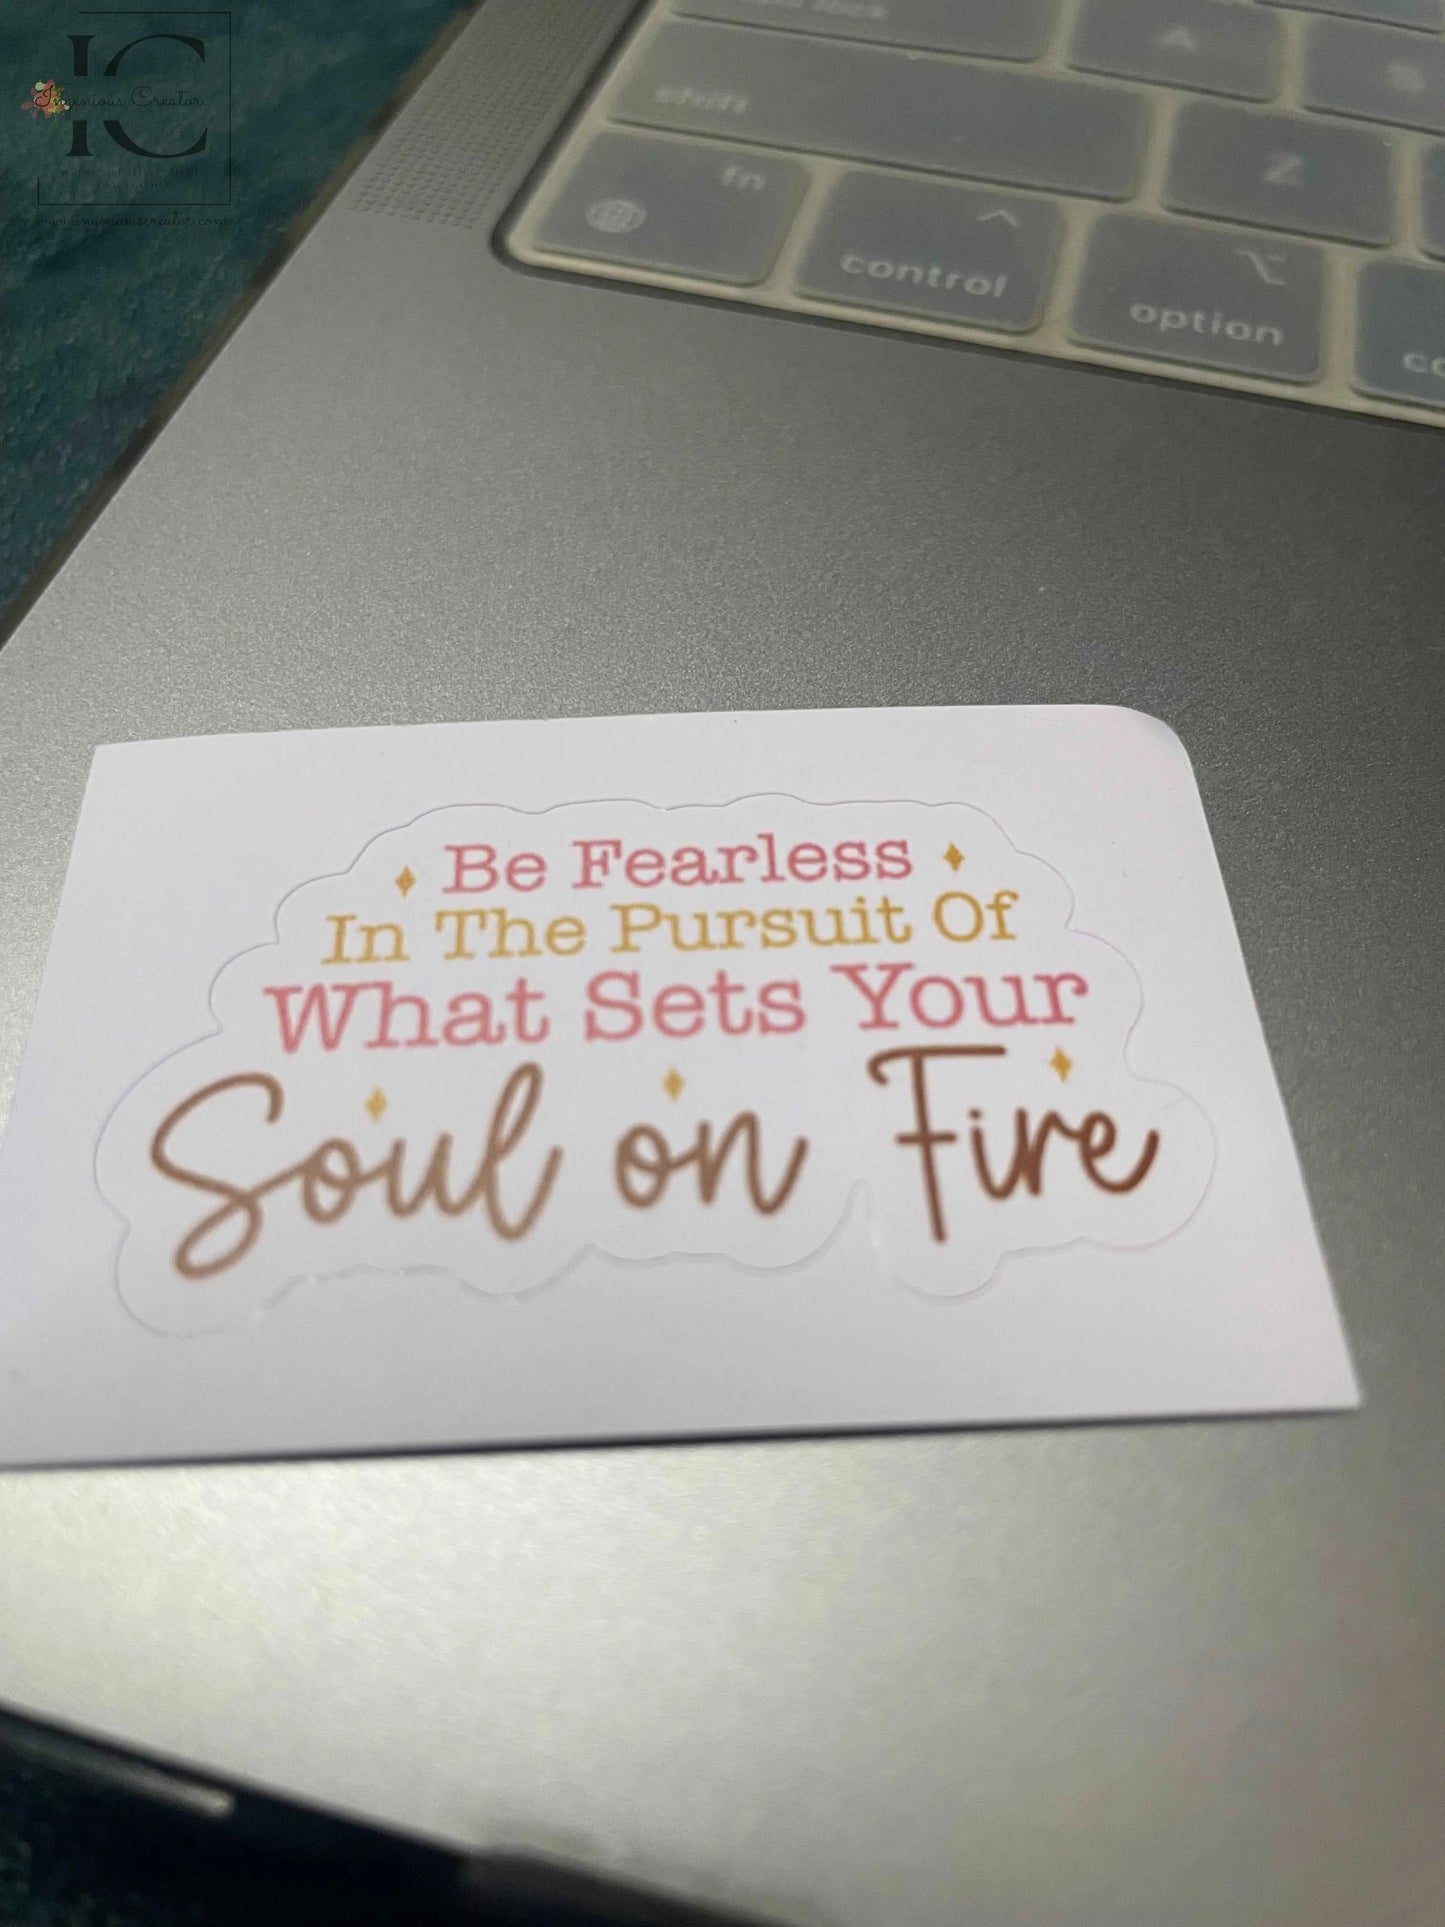 IC
Ingenious Creator
www.ingeniouscreator.com
lock
A
S
shift
Z
fn
control
option
Be Fearless
In The Pursuit Of
What Sets Your
Soul on Fire